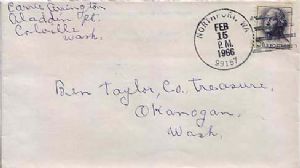 Carrie Covington
Aladdin Rt.
Colville
Wash.
NORTHPORT, WA
FEB
16
P.M.
1966
99157
Ben Taylor, Co. treasure,
Okanogan,
Wash.